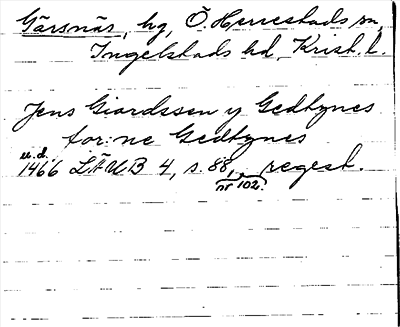 Gärsnäs, hg, Ö. Herrestads sn,
Ingelstads hd, Krist. l.
Jens Giordssen y Gedtznes
for:ne Gedtznes
u.d.
1466 LÄUB 4, s. 88, regest.
nr 102.